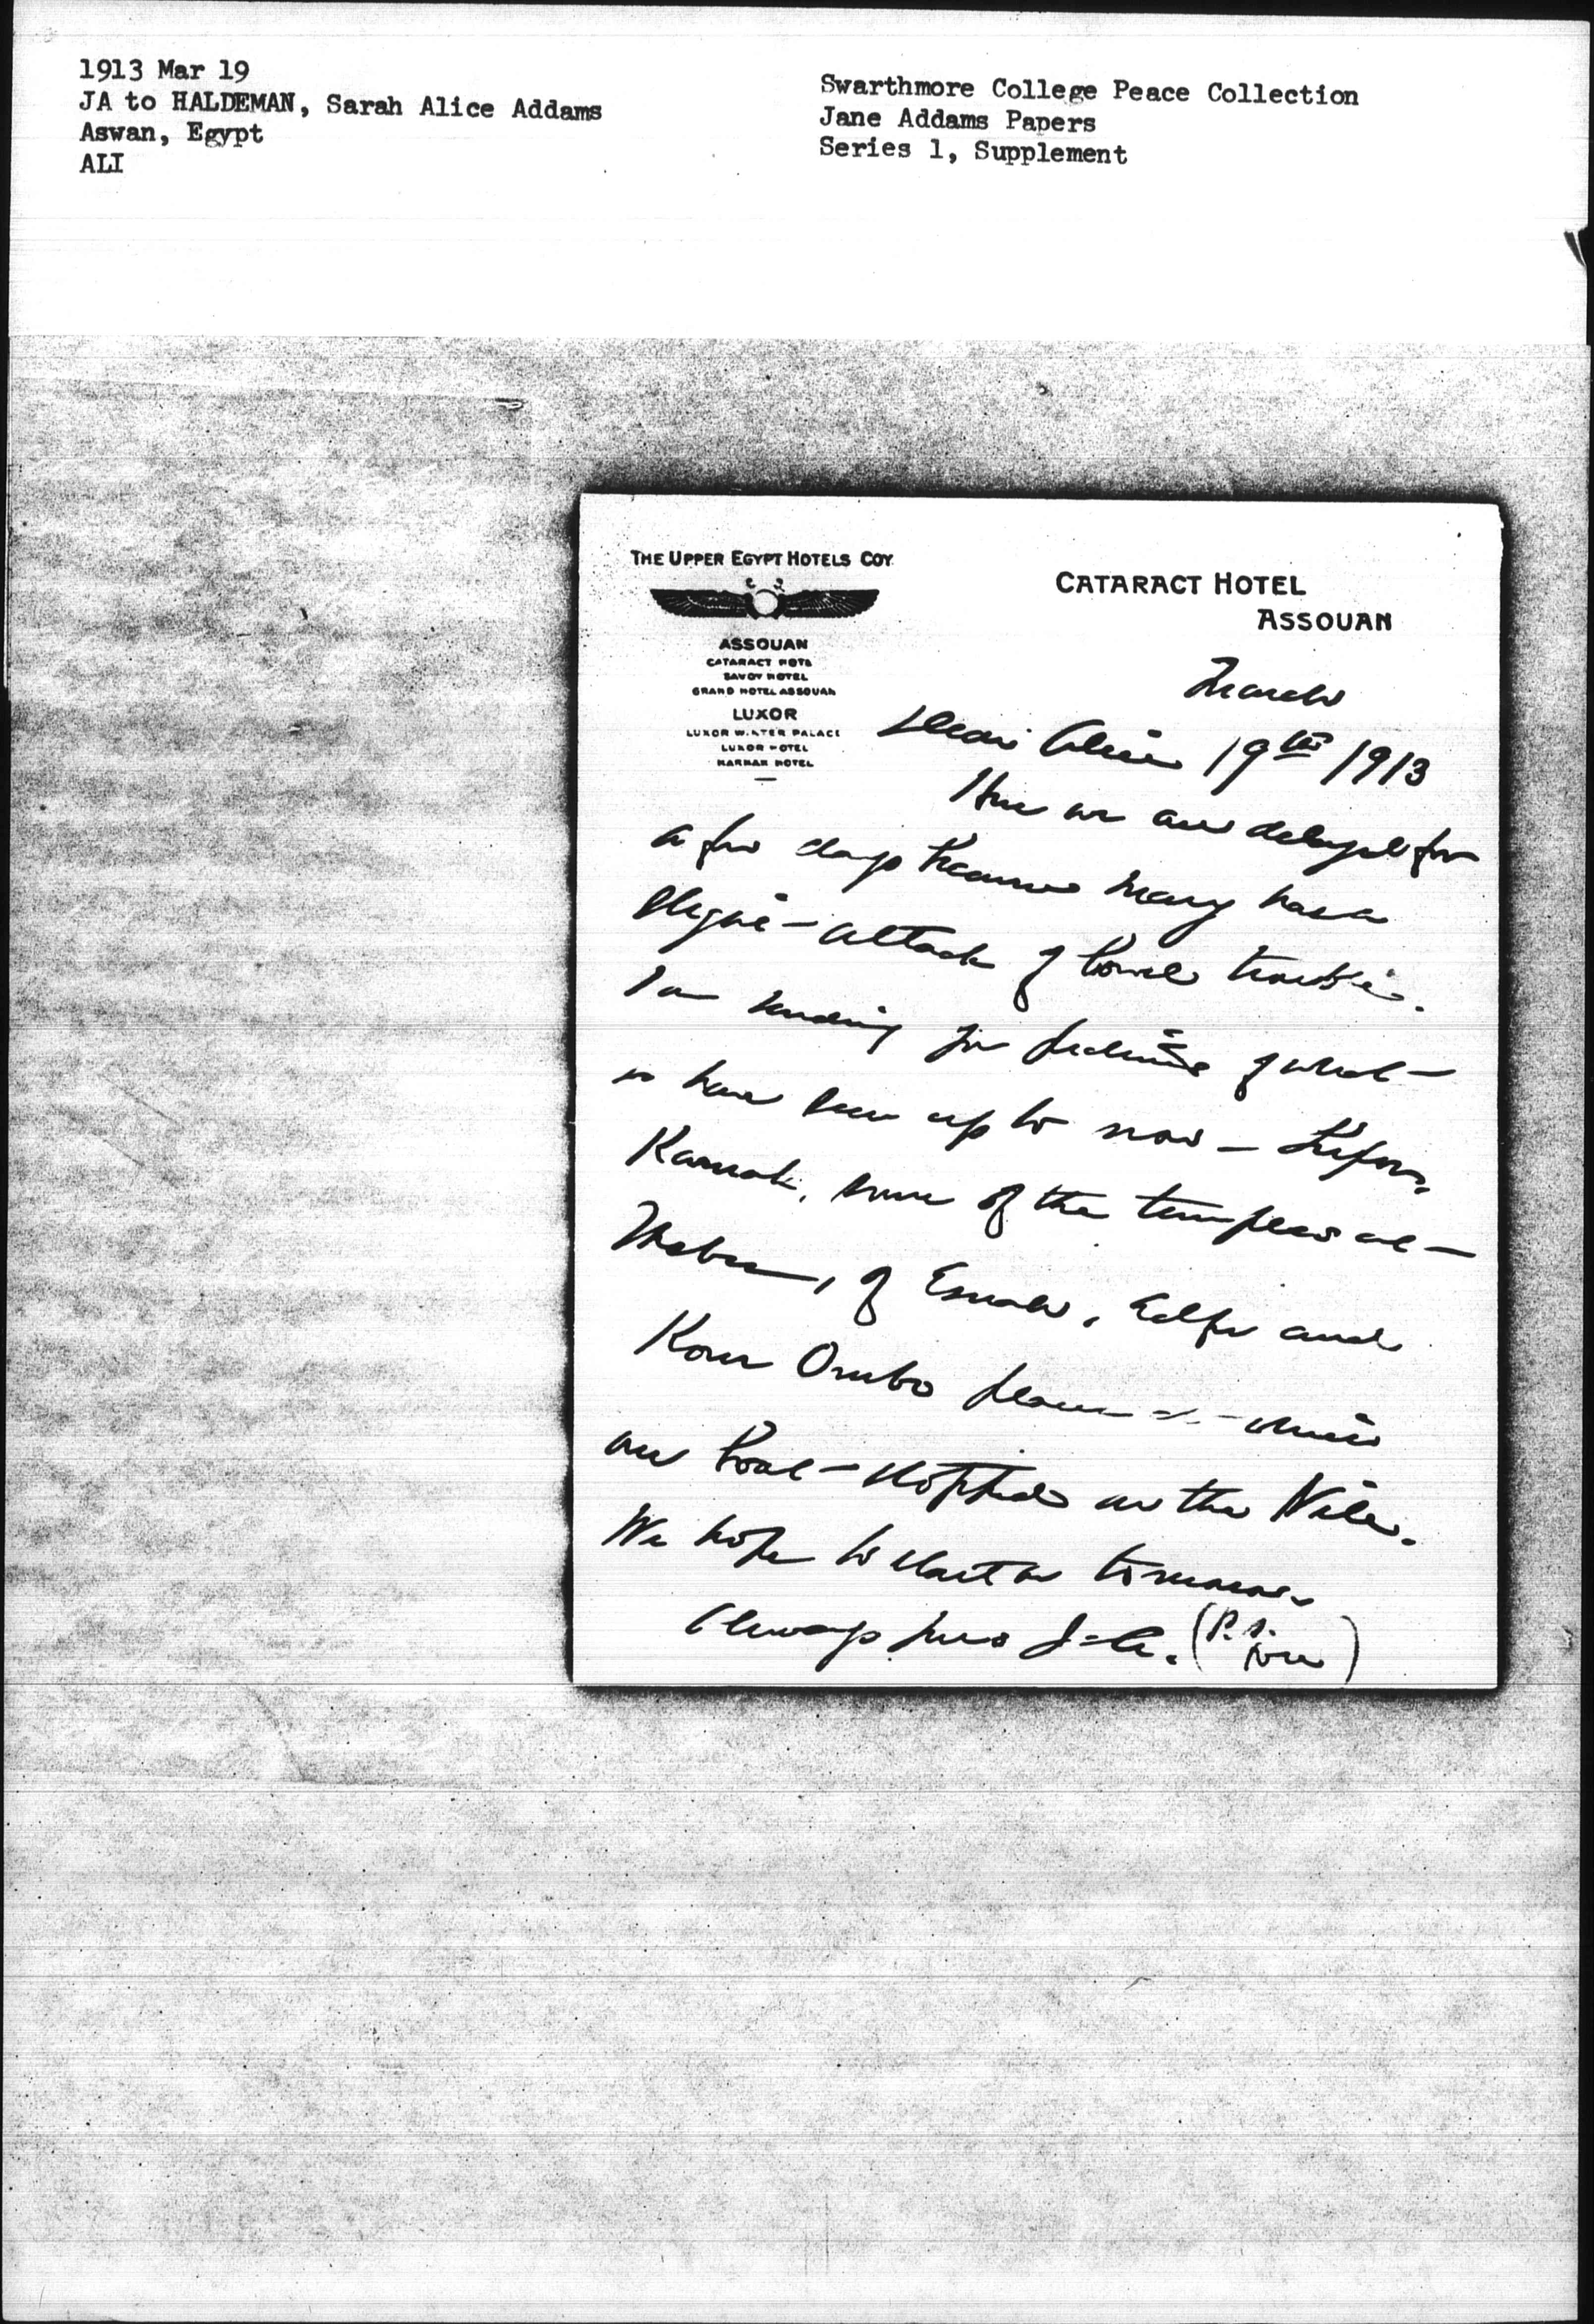 1913 Mar 19
JA to HALDEMAN, Sarah Alice Addams
Aswan, Egypt
ALI
Swarthmore College Peace Collection
Jane Addams Papers
Series 1, Supplement
THE UPPER EGYPT HOTELS COY.
ASSOUAN
CATARACT HOTEL
SAVOY HOTEL
GRAND HOTEL ASSOUAN
LUXOR
LUXOR WINTER PALACE
LUXOR HOTEL
KARNAK HOTEL
CATARACT HOTEL
ASSOUAN
March
Dear Alice 19th 1913
Here we are delayed for
a few days because Mary has a
slight attack of bowel trouble.
I am sending you pictures of what
we have seen up to now –
Karnak, some of the temples at
Thebes, of Esneh, Edfu and
Kom Ombo places at which
our boat stopped on the Nile.
We hope to start on tomorrow
Always yours J. A. (P.S. over)